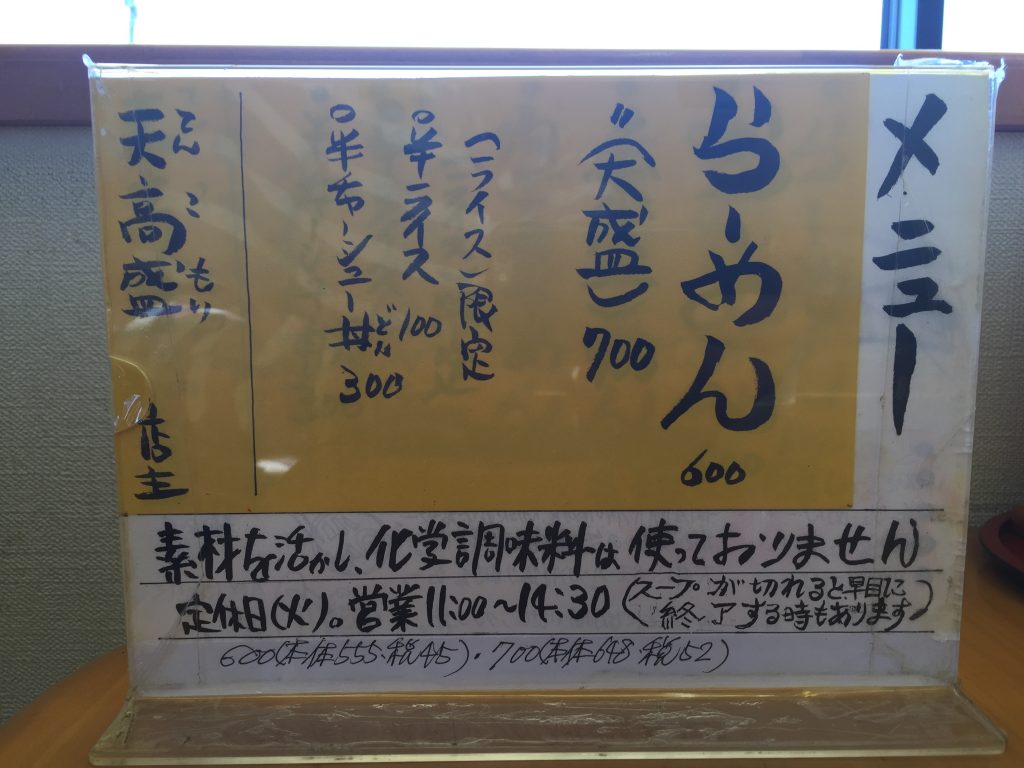 メニュー
らーめん 600
〃(大盛) 700
(ライス)限定
半ライス 100
半チャーシュー丼 どん 300
天高盛 てんこもり 店主
素材を活かし、化学調味料は使っておりません
定休日(火)。営業11:00~14:30(スープが切れると早目に終了する時もあります)
600(本体555・税45)・700(本体648・税52)